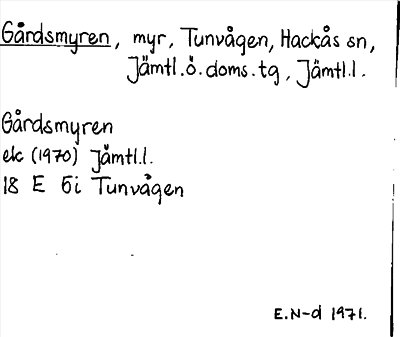 Gårdsmyren, myr, Tunvågen, Hackås sn,
Jämtl.ö.doms.tg, Jämtl.l.
Gårdsmyren
ek (1970) Jämtl.l.
18 E 5i Tunvågen
E.N-d 1971.